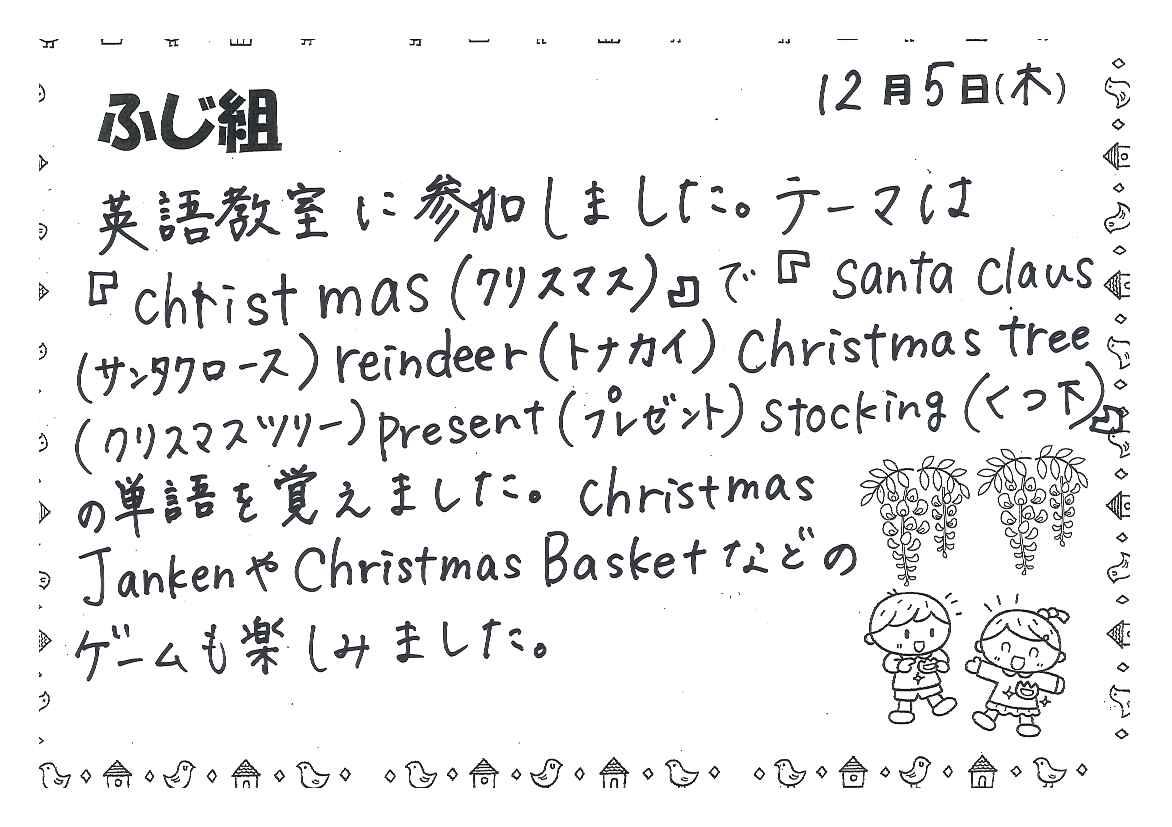 12月5日(木)
ふじ組
英語教室に参加しました。テーマは
『christmas(クリスマス)』で『santa claus
(サンタクロース)reindeer(トナカイ)Christmas tree
(クリスマスツリー)present(プレゼント)stocking(くつ下)』
の単語を覚えました。christmas
JankenやChristmas Basketなどの
ゲームも楽しみました。